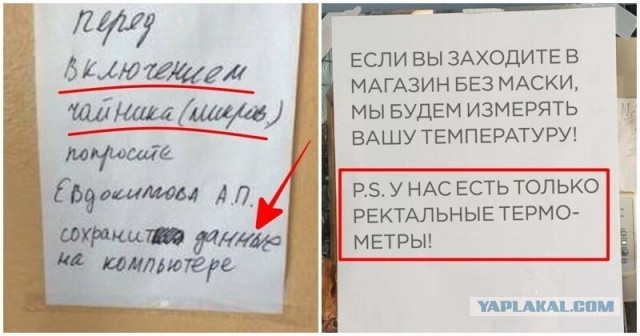 перед
включением
чайника (микров.)
попросите
Евдокимова А.П.
сохранит данные
на компьютере
ЕСЛИ ВЫ ЗАХОДИТЕ В
МАГАЗИН БЕЗ МАСКИ,
МЫ БУДЕМ ИЗМЕРЯТЬ
ВАШУ ТЕМПЕРАТУРУ!
P.S. У НАС ЕСТЬ ТОЛЬКО
РЕКТАЛЬНЫЕ ТЕРМО-
МЕТРЫ!
YAPLAKAL.COM